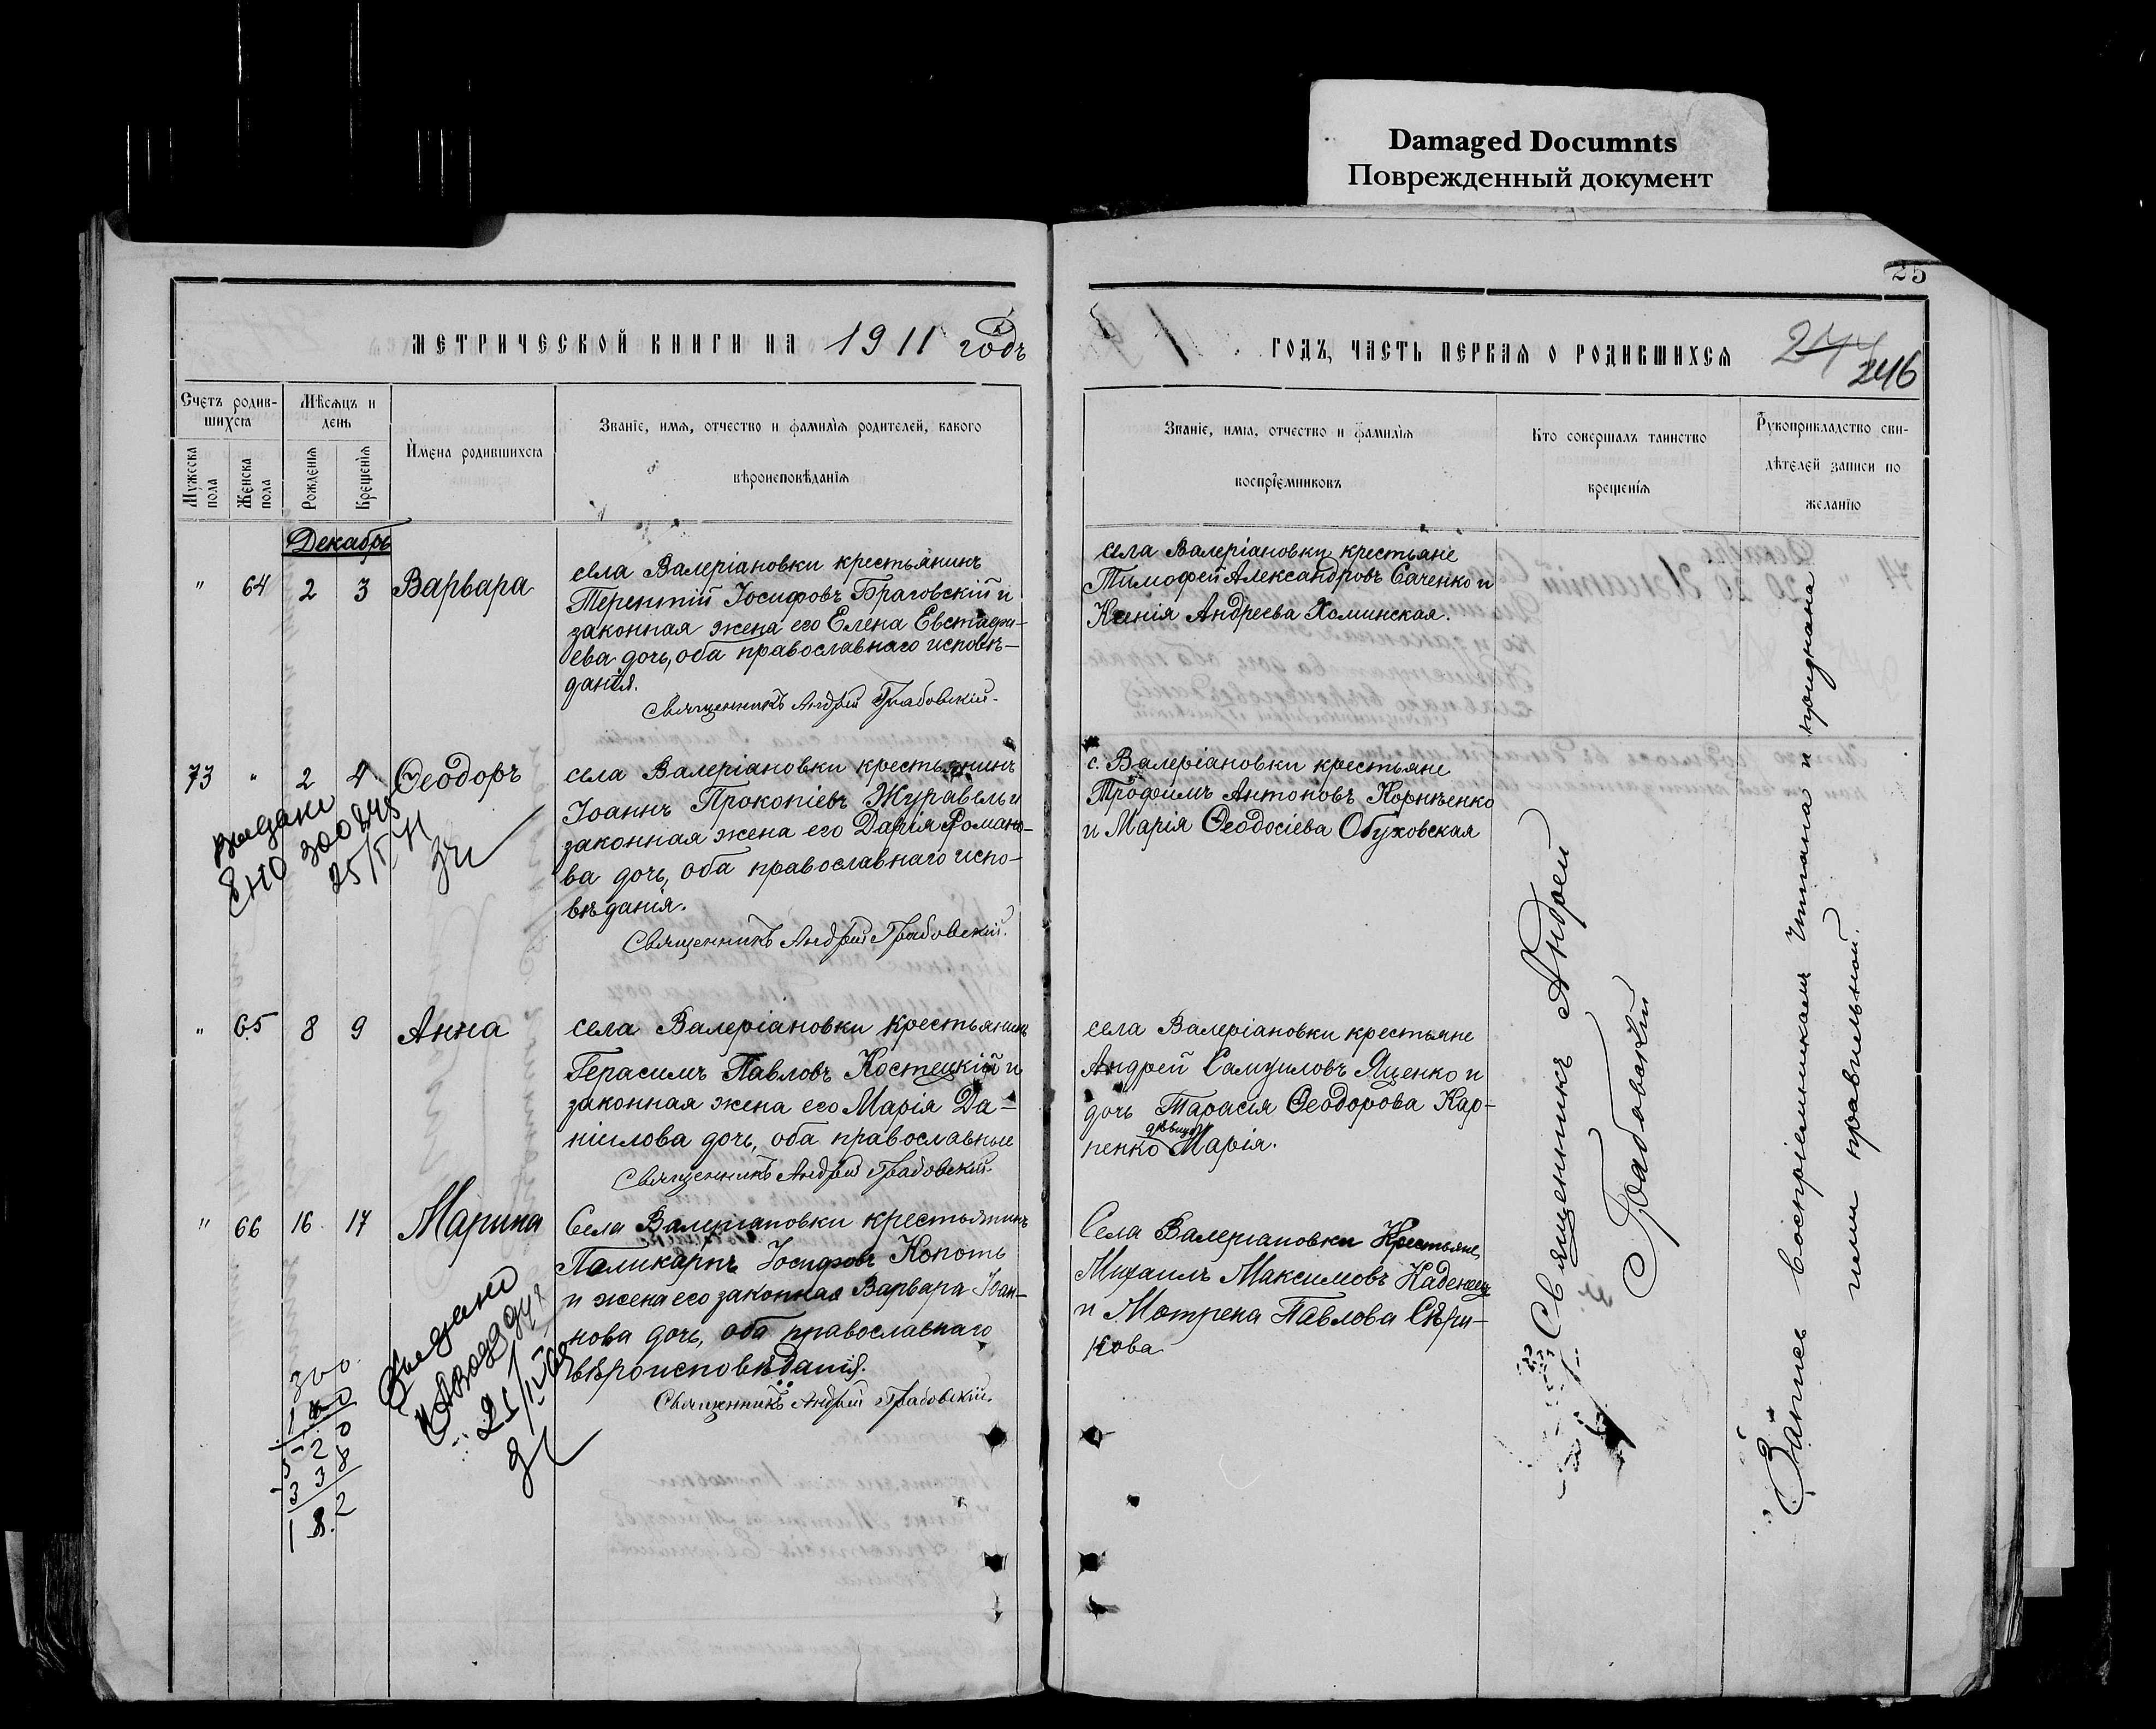 Damaged Documnts
Поврежденный документ
25
МЕТРИЧЕСКОЙ КНИГИ НА 1911 годъ
ГОДЪ, ЧАСТЬ ПЕРВАЯ О РОДИВШИХСЯ
244
246
Счетъ родив-
шихся
Мѣсяцъ и
день
Мужеска
пола
Женска
пола
Рожденія
Крещенія
Имена родившихся
Званіе, имя, отчество и фамилія родителей, какого
вѣроисповѣданія
Званіе, имя, отчество и фамилія
воспріемниковъ
Кто совершалъ таинство
крещенія
Рукоприкладство сви-
дѣтелей записи по
желанію
Декабрь
" 64 2 3 Варвара
села Валеріановки крестьянинъ
Терентій Іосифовъ Браговскій и
законная жена его Елена Евстафи-
ева дочь, оба православнаго исповѣ-
данія.
Священникъ Андрей Грабовскій.
села Валеріановки крестьяне
Тимофей Александровъ Саченко и
Ксенія Андреева Хоминская.
73 " 2 4 Ѳеодоръ
села Валеріановки крестьянинъ
Іоаннъ Прокопіевъ Журавель и
законная жена его Дарія Романо-
ва дочь, оба православнаго испо-
вѣданія.
Священникъ Андрей Грабовскій.
с. Валеріановки крестьяне
Трофимъ Антоновъ Корнѣенко
и Марія Ѳеодосіева Обуховская
выдано
" 65 8 9 Анна
села Валеріановки крестьянинъ
Герасимъ Павловъ Костецкій и
законная жена его Марія Да-
ніилова дочь, оба православные
Священникъ Андрей Грабовскій.
села Валеріановки крестьяне
Андрей Самуиловъ Яценко и
дочь Тарасія Ѳеодорова Кар-
пенко дѣвица Марія.
" 66 16 17 Марина
Села Валеріановки крестьянинъ
Поликарпъ Іосифовъ Копоть
и жена его законная Варвара Іоан-
нова дочь, оба православнаго
вѣроисповѣданія.
Священникъ Андрей Грабовскій.
Села Валеріановки Крестьяне,
Михаилъ Максимовъ Каденец
и Мотрена Павлова Сѣри-
кова
Выдано
300
520
338
182
Священникъ Андрей
Грабовскій
Запись воспріемникамъ читана и признана
ими правильной.